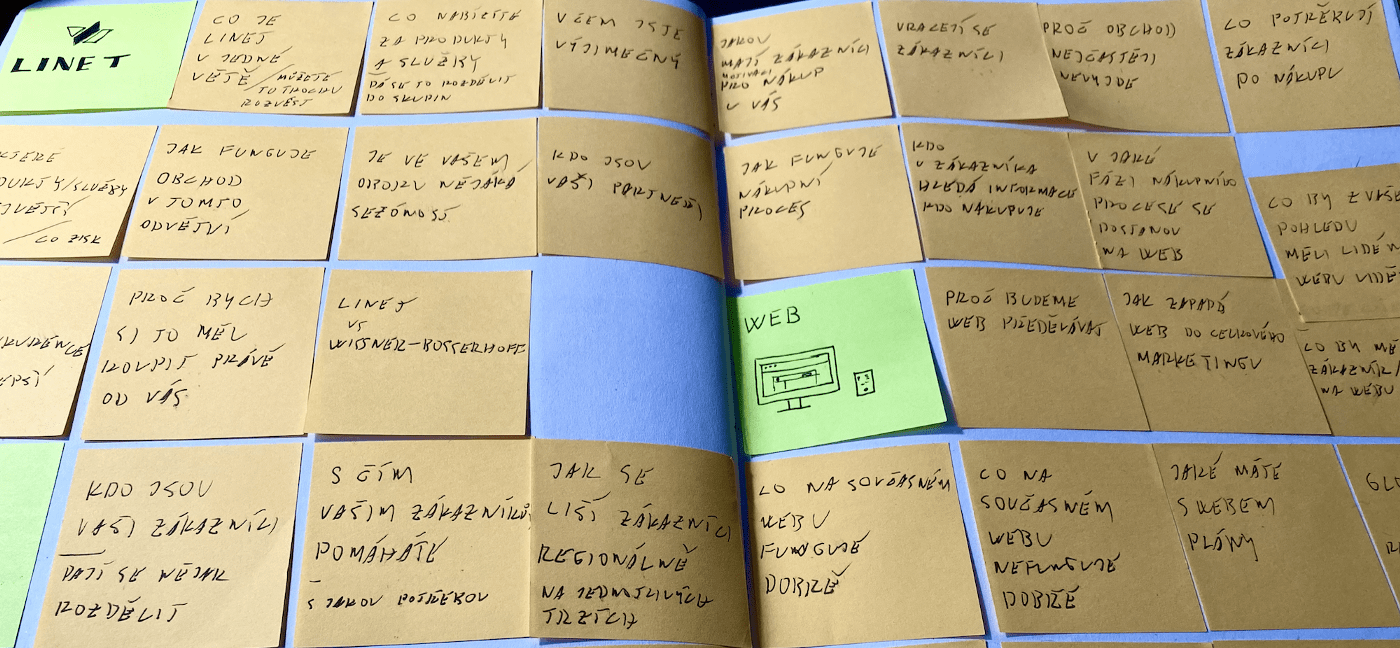 LINET
CO JE
LINET
V JEDNÉ
VĚTĚ / MŮŽETE
TO TROCHU
ROZVÉST
CO NABÍZÍTE
ZA PRODUKTY
A SLUŽBY
DÁ SE TO ROZDĚLIT
DO SKUPIN
V ČEM JSTE
VÝJIMEČNÝ
JAKOU
MAJÍ ZÁKAZNÍCI
MOTIVACI
PRO NÁKUP
U VÁS
VRACEJÍ SE
ZÁKAZNÍCI
PROČ OBCHOD
NEJČASTĚJI
NEVYJDE
CO POTŘEBUJÍ
ZÁKAZNÍCI
PO NÁKUPU
KTERÉ
DUKTY/SLUŽBY
/CO ZISK
JAK FUNGUJE
OBCHOD
V TOMTO
ODVĚTVÍ
JE VE VAŠEM
OBORU NĚJAKÁ
SEZÓNOST
KDO JSOU
VAŠI PARTNEŘI
JAK FUNGUJE
NÁKUPNÍ
PROCES
KDO
U ZÁKAZNÍKA
HLEDÁ INFORMACE
KDO NAKUPUJE
V JAKÉ
FÁZI NÁKUPNÍHO
PROCESU SE
DOSTANOU
NA WEB
CO BY Z VAŠE
POHLEDU
MĚLI LIDÉ N
WEBU VIDĚ
KURENCE
EPŠÍ
PROČ BYCH
SI TO MĚL
KOUPIT PRÁVĚ
OD VÁS
LINET
VS
WISSNER-BOSSERHOFF
WEB
PROČ BUDEME
WEB PŘEDĚLÁVAT
JAK ZAPADÁ
WEB DO CELKOVÉHO
MARKETINGU
CO BY MĚ
ZÁKAZNÍK
NA WEBU
KDO JSOU
VAŠI ZÁKAZNÍCI
DAJÍ SE NĚJAK
ROZDĚLIT
S ČÍM
VAŠIM ZÁKAZNÍKŮM
POMÁHÁTE
S JAKOU POTŘEBOU
JAK SE
LIŠÍ ZÁKAZNÍCI
REGIONÁLNĚ
NA JEDNOTLIVÝCH
TRZÍCH
CO NA SOUČASNÉM
WEBU
FUNGUJE
DOBŘE
CO NA
SOUČASNÉM
WEBU
NEFUNGUJE
DOBŘE
JAKÉ MÁTE
S WEBEM
PLÁNY
GLO